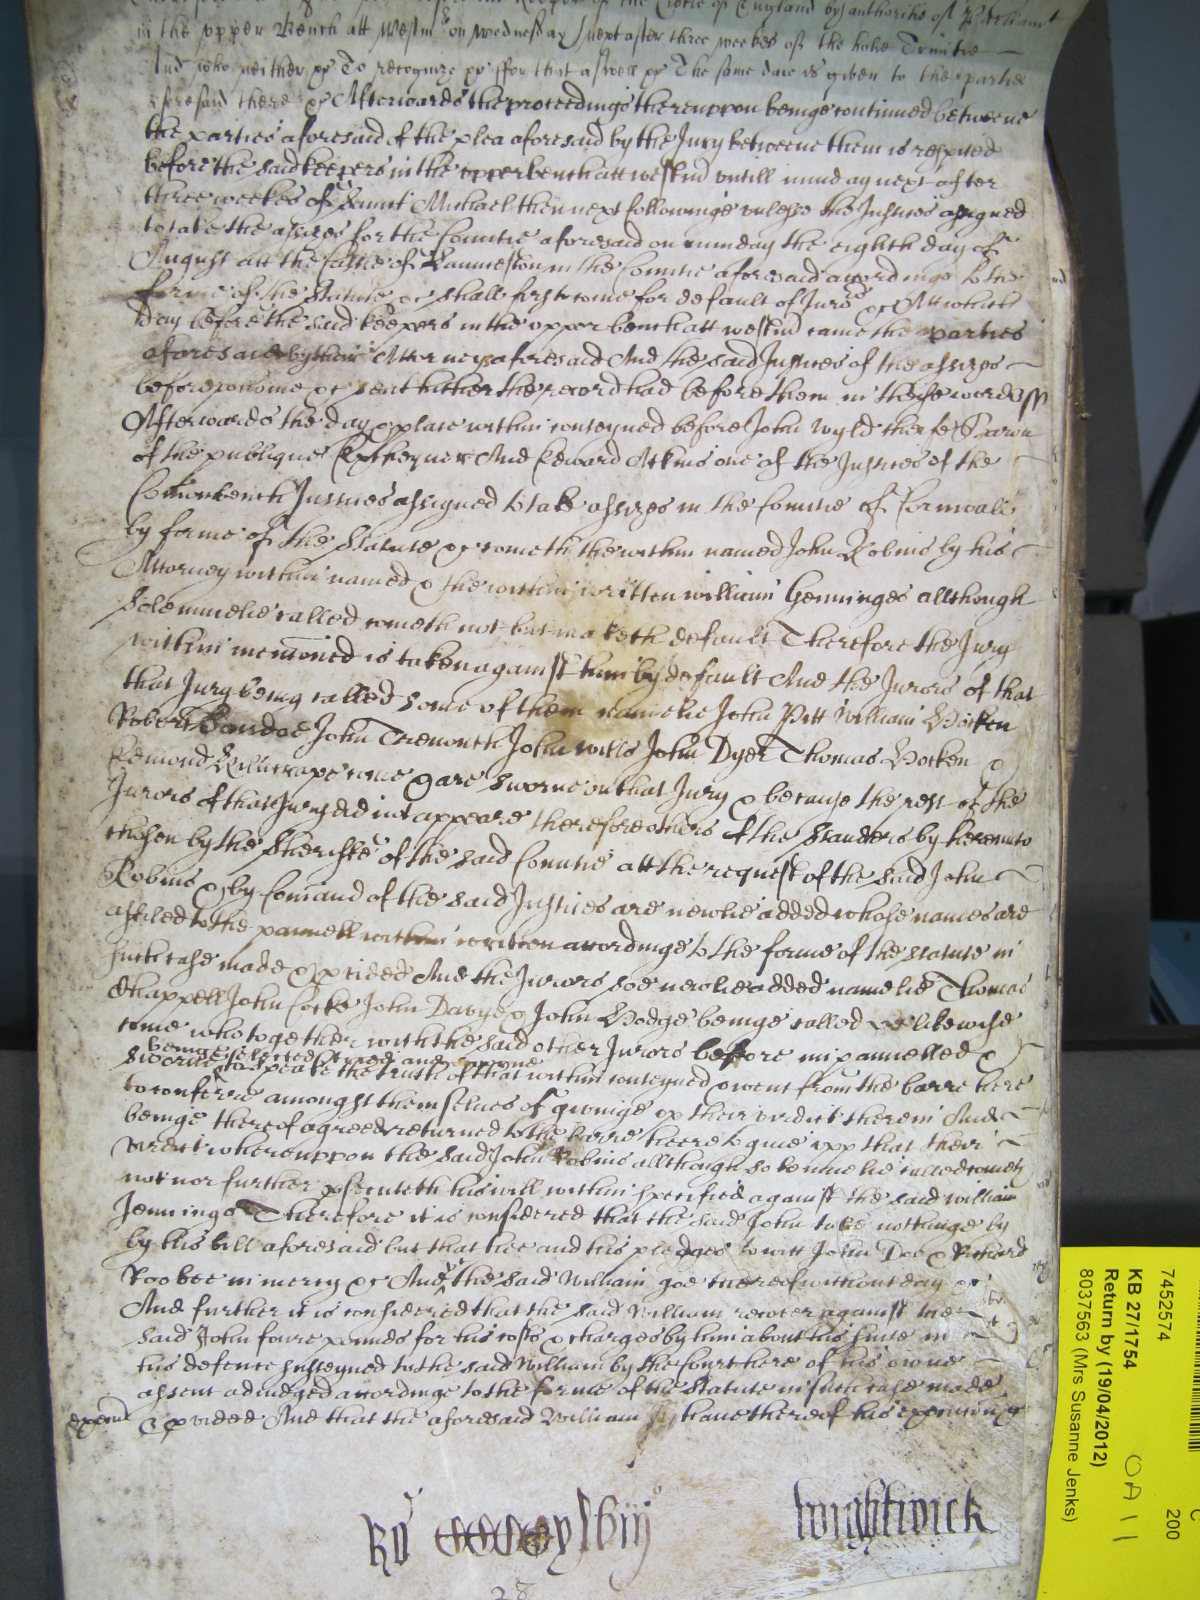 in the upper Bench att Westm on Wednesday next after three weekes of the holie Trinitie
And who neither &c To recognize &c ffor that aswell &c The same daie is given to the parties
aforesaid there &c Afterwards the proceedings thereuppon beinge continued betweene
the parties aforesaid of the plea aforesaid by the Jury betweene them is respited
before the said keepers in the upper bench att westm untill munday next after
three weekes of Saint Michael then next followinge unlesse the Justices assigned
to take the assizes for the Countie aforesaid on munday the eighth day of
August att the Castle of Launceston in the Countie aforesaid accordinge to the
forme of the Statute &c shall first come for default of Jurors &c Att which
day before the said keepers in the upper bench att westm came the parties
aforesaid by their Attorneys aforesaid And the said Justices of the assizes
before whome &c sent hither the record had before them in these words ss
Afterwards the day & place within conteyned before John Wyld cheife Baron
of the publique Exchequer And Edward Atkins one of the Justices of the
Comon bench Justices assigned to take assizes in the Countie of Cornwall
by forme of the Statute &c cometh the within named John Robins by his
Attorney within named & the within written william Jenninges allthough
solemnelie called cometh not but maketh default Therefore the Jury
within mencioned is taken against him by default And the Jurors of that
that Jury being called some of them namelie John Pitt William Hocken
Robert John Tremonth John wills John Dyer Thomas Hocken &
Edmond come & are sworne on that Jury & because the rest of the
Jurors of that Jury did not appeare therefore others of the Standers by hereunto
chosen by the Sheriffe of the said Countie att the request of the said John
Robins & by Comand of the said Justices are newlie added whose names are
affiled to the pannell within written accordinge to the forme of the statute in
such case made & provided And the Jurors soe newlie added namelie Thomas
Chappell John Cocke John Davye & John Hodge beinge called likewise
come who together with the said other Jurors before impannelled &
beinge elected tryed and sworne
to speake the truth of that within conteyned & went from the barre here
to conferre amongst themselves of givinge up their verdict therein And
beinge thereof agreed returned to the barre heere to give upp that their
verdict whereuppon the said John Robins allthough solemnelie called cometh
not nor further prosecuteth his bill within specified against the said william
Jennings Therefore it is considered that the said John take nothinge by
by his bill aforesaid but that hee and his pledges to witt John Doe & Richard
Roo bee in mercy &c And the said William goe thereof without day &c
And further it is considered that the said William recover against the
said John foure pounds for his costs & charges by him about his suite in
his defence susteyned to the said William by the Court here of his owne
assent adiudged accordinge to the forme of the Statute in such case made
& provided And that the aforesaid William have thereof his execucion &c
Wightwick
28
7452574
KB 27/1754
Return by (19/04/2012)
8037563 (Mrs Susanne Jenks)
C
200
OA 11